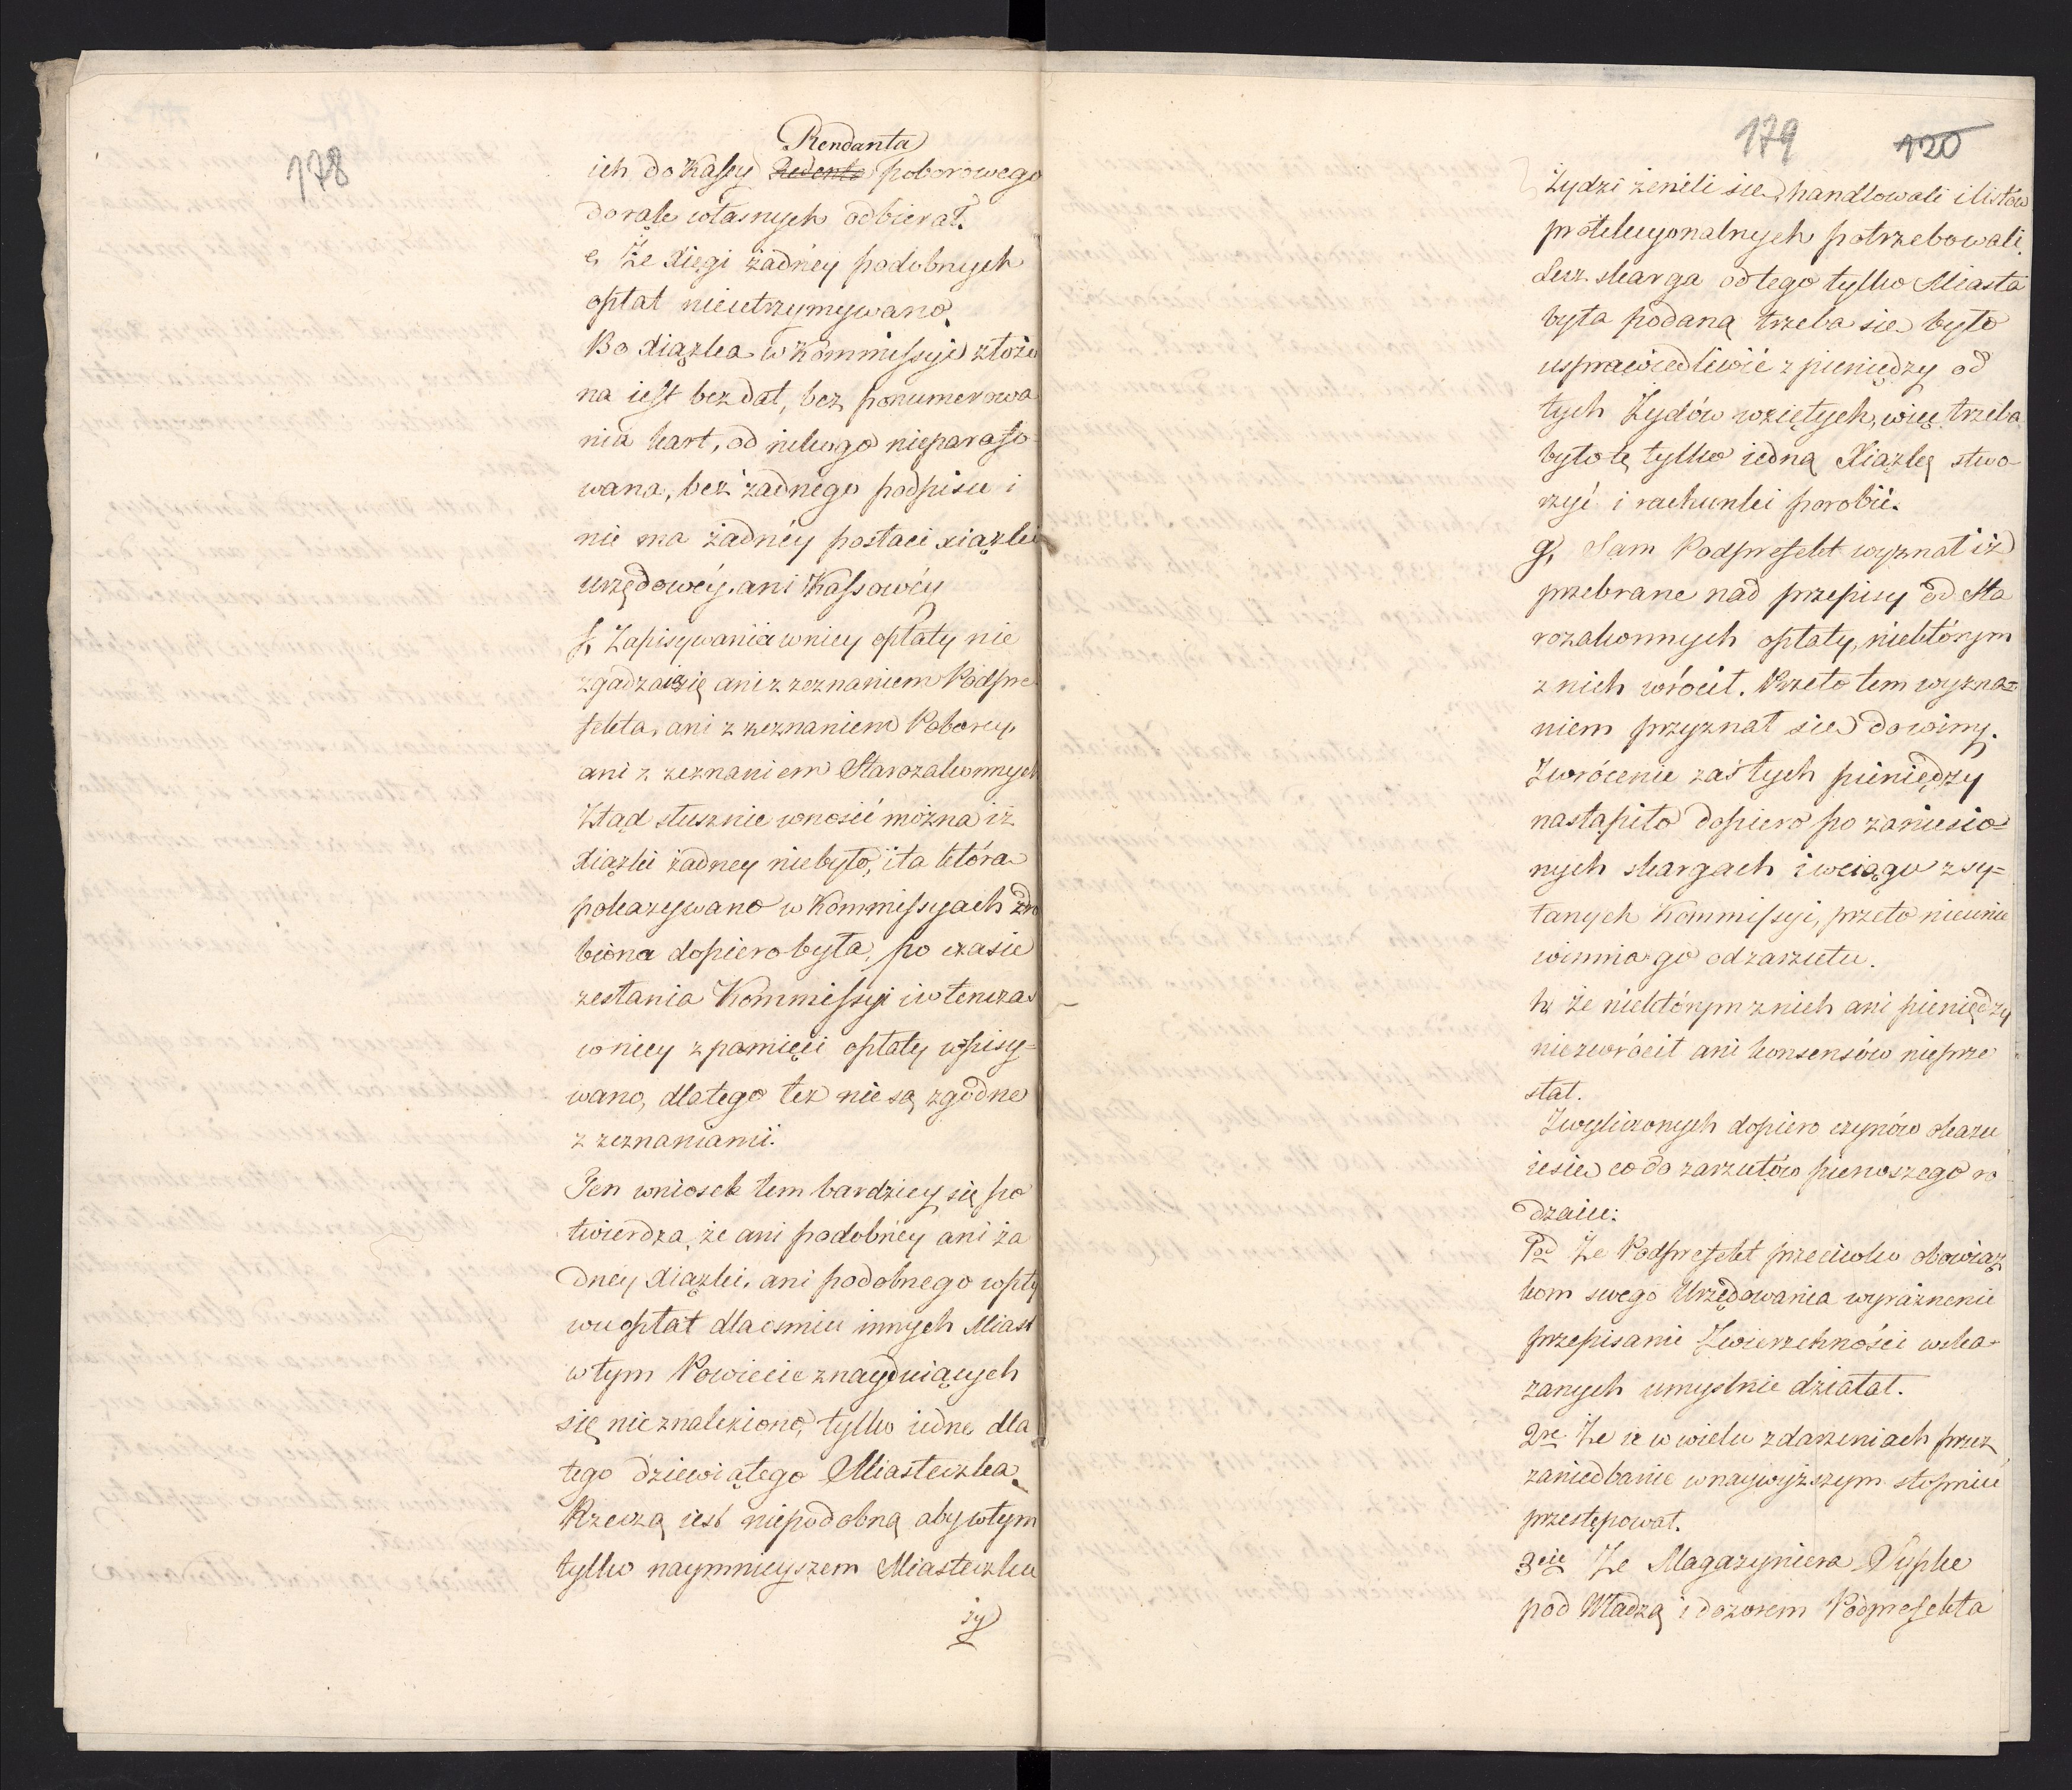 178
Rendanta
ich do Kassy Redenta poborowego
do rąk własnych odbierał.
e, Że Xięgi żadnéy podobnych
opłat nieutrzymywano.
Bo Xiążka w Kommissyi złożo
na iest bez dat, bez ponumerowa
nia kart, od nikogo nieparafo
wana, bez żadnego podpisu i
nie ma żadnéy postaci xiążki
urzędowéy, ani Kassowéy
f, Zapisywania w niey opłaty nie
zgadzaią się ani z zeznaniem Podpre
fekta, ani z zeznaniem Poborcy,
ani z zeznaniem Starozakonnych
Ztąd słusznie wnosić można iż
Xiążki żadney niebyło, i ta która
pokazywano w Kommissyach zro
biona dopiero była, po czasie
zesłania Kommissyi i wtenczas
w niey z pamięci opłaty wpisy=
wano, dlatego też nie są zgodne
z zeznaniami.
Ten wniosek tem bardziey się po
twierdza, że ani podobnéy ani ża
dney Xiążki, ani podobnego wpły
wu opłat dla ośmiu innych Miast
w tym Powiecie znayduiących
się nie znaleziono, tylko iedne dla
tego dziewiątego Miasteczka.
Rzeczą iest niepodobną aby w tym
tylko naymnieyszem Miasteczku
ży
179
120
Żydzi żenili się, handlowali i listów
protekcyonalnych potrzebowali.
Lecz skarga od tego tylko Miasta
była podaną trzeba się było
usprawiedliwić z pieniędzy od
tych Żydów wziętych, więc trzeba
było tę tylko iedną Xiążkę stwo-
rzyć i rachunki porobić.
g, Sam Podprefekt wyznał iż
przebrane nad przepisy od Sta
rozakonnych opłaty, niektórym
z nich wrócił. Przeto tem wyzna=
niem przyznał się do winy.
Zwrócenie zaś tych pieniędzy
nastąpiło dopiero po zaniesio=
nych skargach i w ciągu zsy=
łanych Kommissyi, przeto nieunie
winnia go od zarzutu.
h, że niektórym z nich ani pieniędzy
niezwrócił ani konsensów nieprze
słał.
Z wyliczonych dopiero czynów okazu
ie sie co do zarzutów pierwszego ro
dzaiu:
1od Że Podprefekt przeciwko obowiąz
kom swego Urzędowania wyraźnenie
przepisami Zwierzchności wska-
zanych umyślnie działał.
2re Że w wielu zdarzeniach przez
zaniedbanie w naywyższym stopniu
przestępował.
3cie Że Magazyniera Pypke
pod Władzą i dozorem Podprefekta